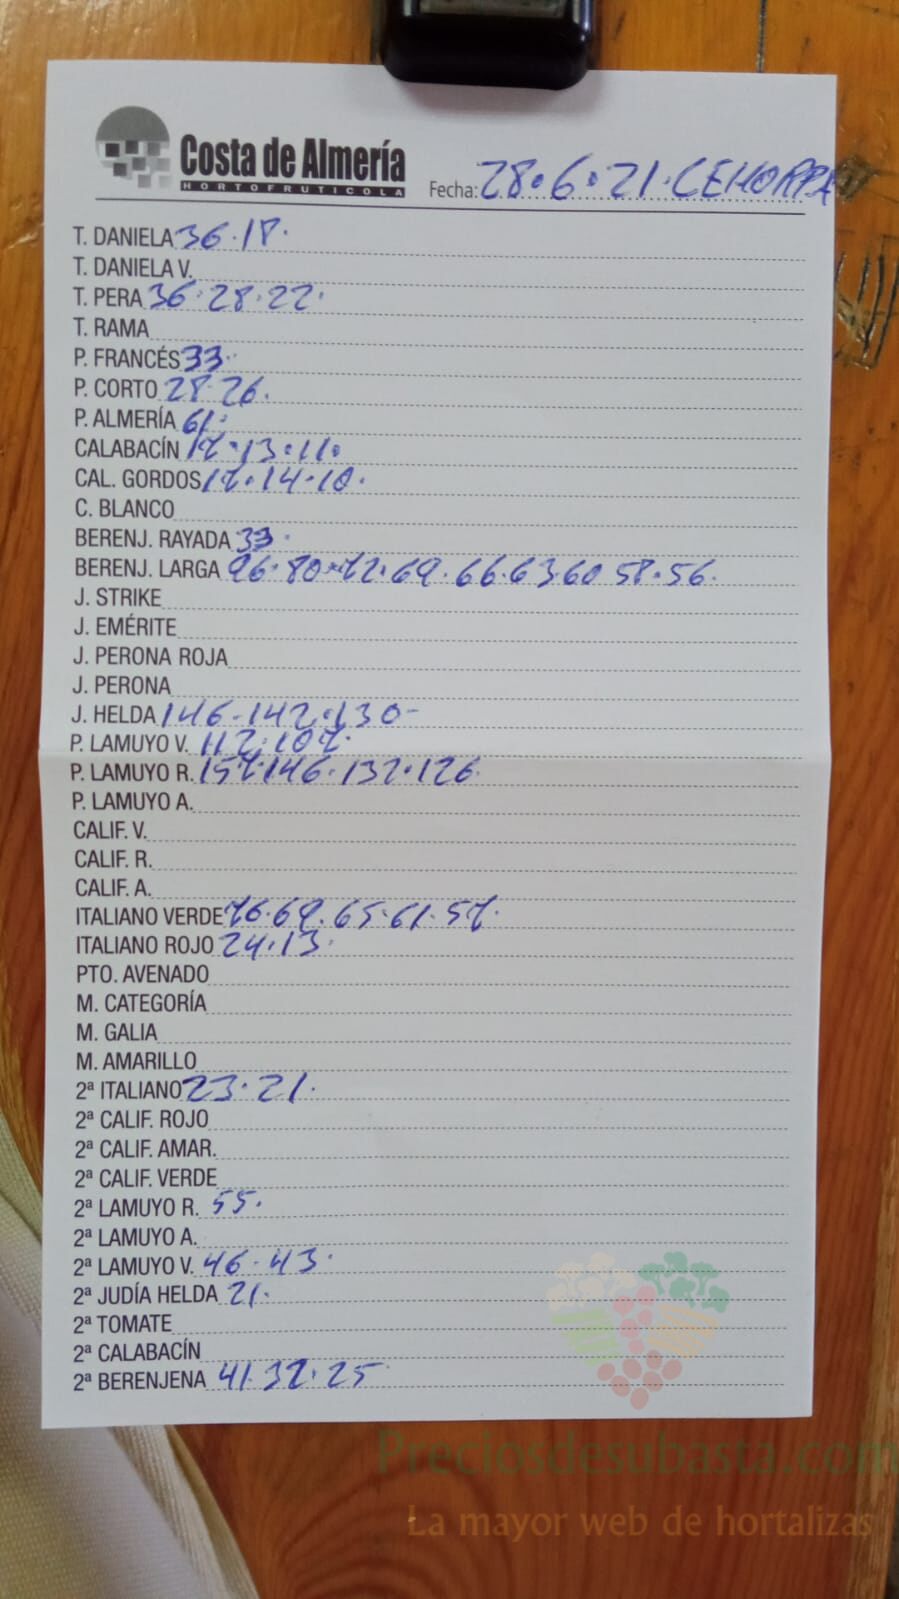 Costa de Almería
HORTOFRUTICOLA
Fecha: 28.6.21.CEHORPA
T. DANIELA 36.18.
T. DANIELA V.
T. PERA 36.28.22.
T. RAMA
P. FRANCÉS 33.
P. CORTO 28 26.
P. ALMERÍA 61.
CALABACÍN 17.13.11.
CAL. GORDOS 17.14.10.
C. BLANCO
BERENJ. RAYADA 33.
BERENJ. LARGA 96.80.72.69.66.63.60 58.56.
J. STRIKE
J. EMÉRITE
J. PERONA ROJA
J. PERONA
J. HELDA 146.142.130-
P. LAMUYO V. 112.107.
P. LAMUYO R. 157.146.132.126.
P. LAMUYO A.
CALIF. V.
CALIF. R.
CALIF. A.
ITALIANO VERDE 76.69.65.61.57.
ITALIANO ROJO 24.13.
PTO. AVENADO
M. CATEGORÍA
M. GALIA
M. AMARILLO
2ª ITALIANO 23.21.
2ª CALIF. ROJO
2ª CALIF. AMAR.
2ª CALIF. VERDE
2ª LAMUYO R. 55.
2ª LAMUYO A.
2ª LAMUYO V. 46.43.
2ª JUDÍA HELDA 21.
2ª TOMATE
2ª CALABACÍN
2ª BERENJENA 41.32.25
Preciosdesubasta.com
La mayor web de hortalizas